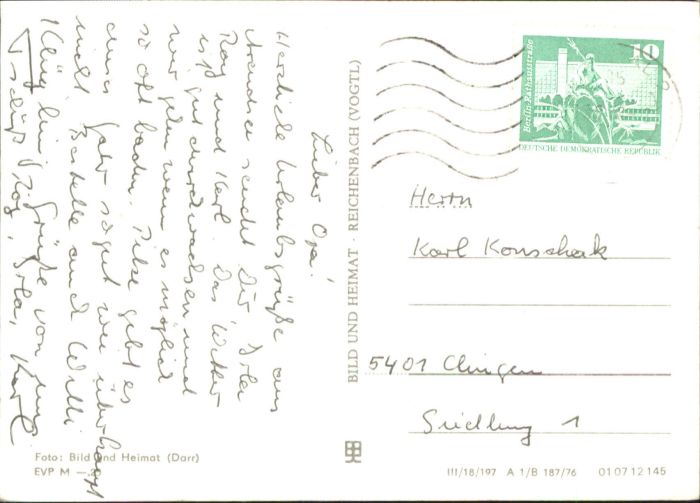 Lieber Opa!
Herzliche Urlaubsgrüße aus
sendet Dir
Ray und Karl. Das Wetter
ist gut durchwachsen und
wir gehen wenn es möglich
so oft baden. Pilze gibt es
dieses Jahr so gut wie überhaupt
nicht. Bestelle auch Willi
Grüße von uns
Tschüß Ray, Karl
BILD UND HEIMAT · REICHENBACH (VOGTL)
Berlin, Rathausstraße
10
DEUTSCHE DEMOKRATISCHE REPUBLIK
Herrn
Karl Konschak
5401 Clingen
Siedlung 1
Foto: Bild und Heimat (Darr)
EVP M
III/18/197 A 1/B 187/76 01 07 12 145